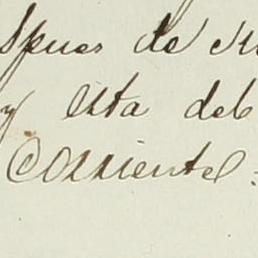 spues de
y esta deb
Corriente